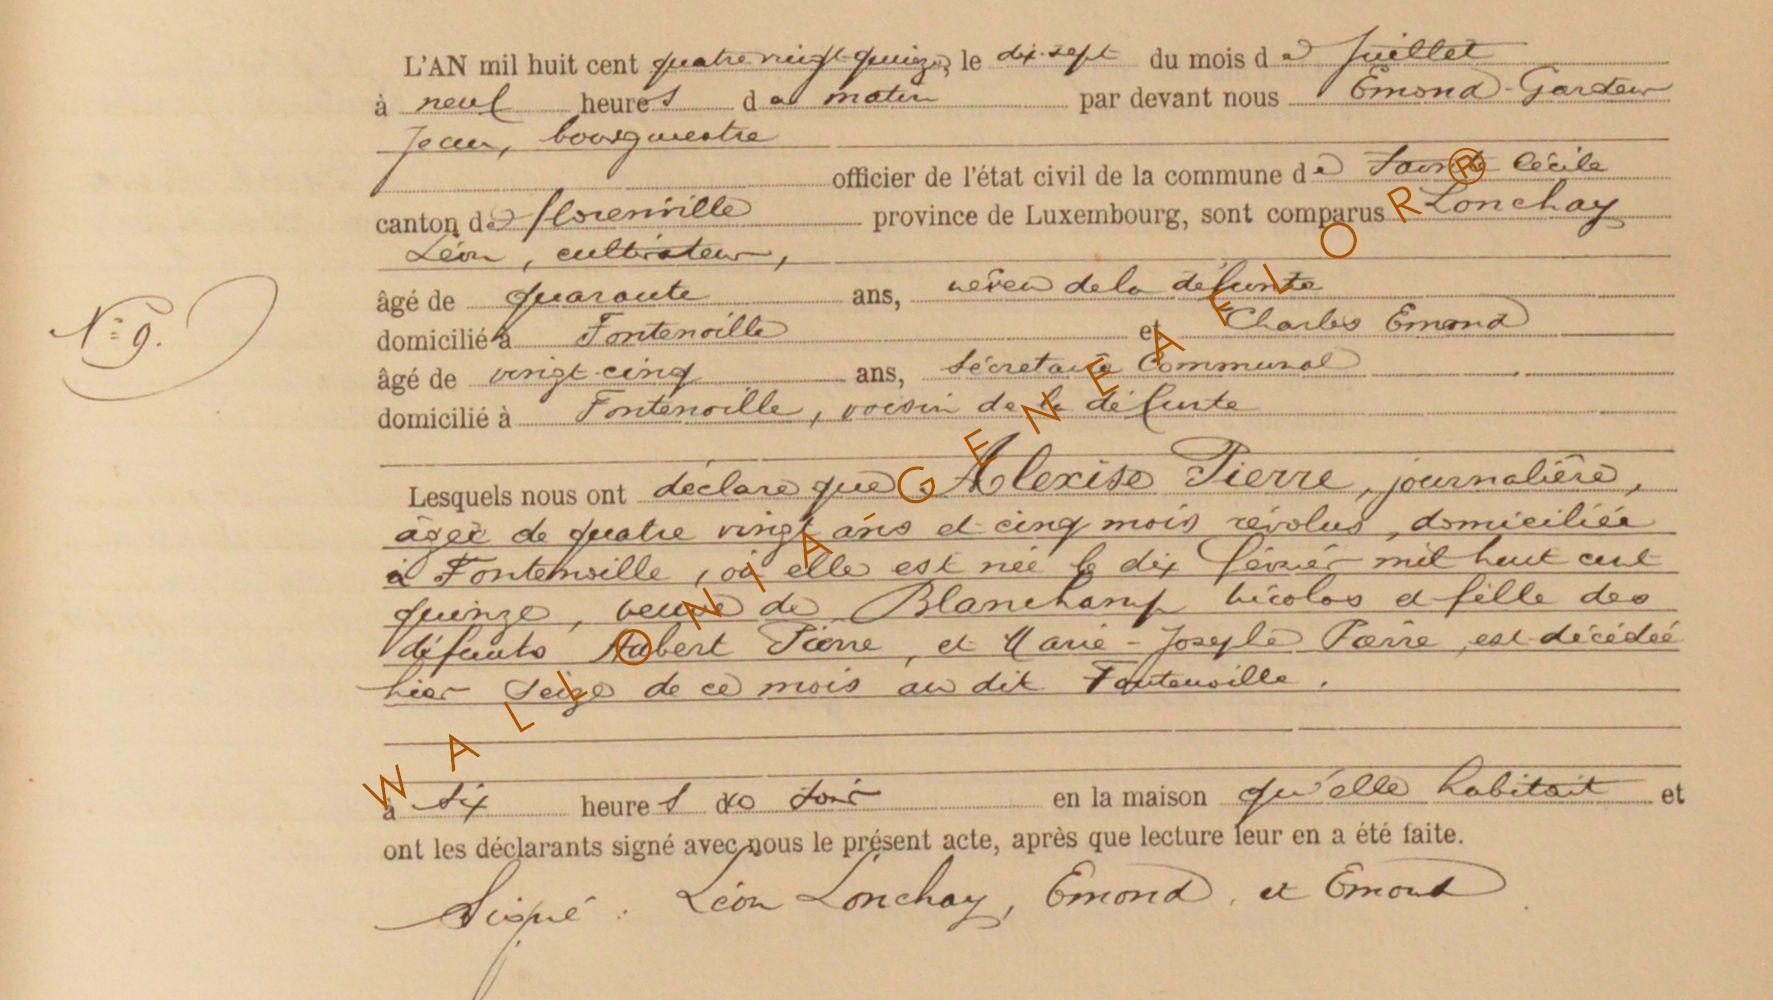 L'AN mil huit cent quatre vingt-quinze, le dix-sept du mois de Juillet
à neuf heures du matin par devant nous Emond-Gardeur
Jean, bourgmestre
officier de l'état civil de la commune de Sainte Cécile
canton de florenville province de Luxembourg, sont comparus Lonchay
Léon, cultivateur,
âgé de quarante ans, neveu de la défunte
N° 9.
domicilié à Fontenoille et Charles Emond
âgé de vingt-cinq ans, Sécretaire Communal
domicilié à Fontenoille, voisin de la défunte
Lesquels nous ont déclaré que Alexise Pierre, journalière,
âgée de quatre vingt ans et cinq mois révolus, domiciliée
à Fontenoille, où elle est née le dix février mil huit cent
quinze, veuve de Blanchamp Nicolas et fille des
défunts Hubert Pierre, et Marie-Josephe Pierre, est décédée
hier Seize de ce mois au dit Fontenoille.
à six heures du soir en la maison qu'elle habitait et
ont les déclarants signé avec nous le présent acte, après que lecture leur en a été faite.
Signé : Léon Lonchay, Emond, et Emond
WALLONIA GENEAFLOR®